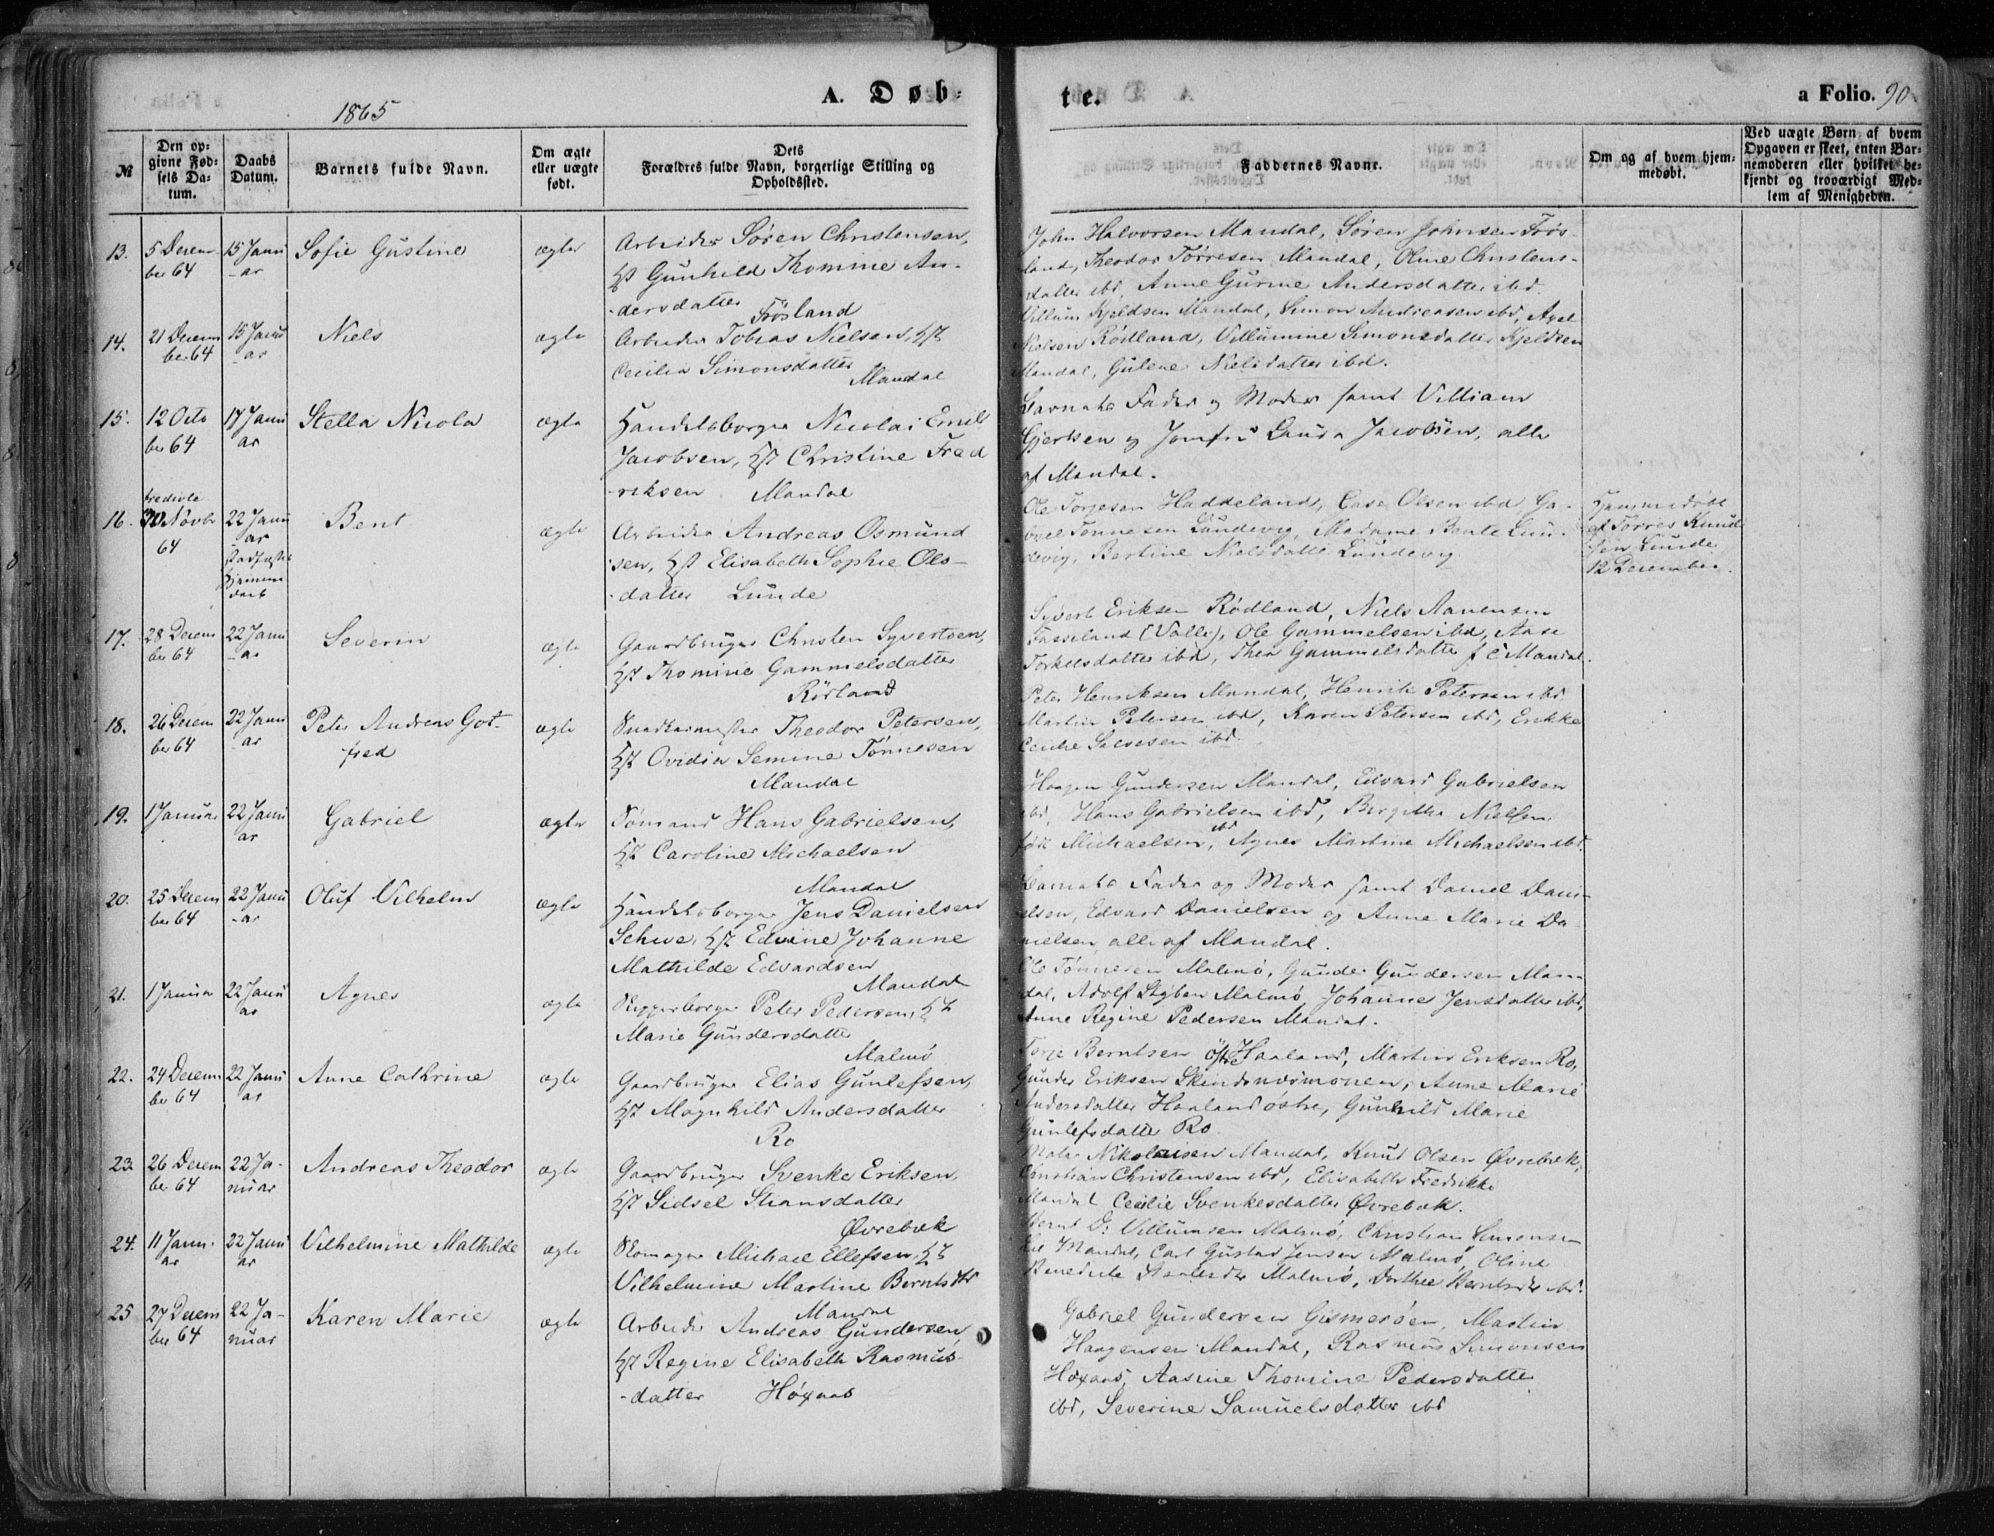 1865
A. Døb-
te.
a Folio. 90
№
Den op-
givne Fød-
sels Da-
tum.
Daabs
Datum.
Barnets fulde Navn.
Om ægte
eller uægte
født.
Dets
Forældres fulde Navn, borgerlige Stilling og
Opholdssted.
Faddernes Navne.
Om og af hvem hjem-
medøbt.
Ved uægte Børn af hvem
Opgaven er skeet, enten Bar-
nemoderen eller hvilket be-
kjendt og troværdigt Med-
lem af Menigheden.
13.
5 Decem
ber 64
15 Janu
-ar
Sofie Gustine
ægte
Arbeider Søren Christensen,
Hst Gunhild Thomine An-
dersdatter
Frøsland
John Halvorsen Mandal, Søren Johnsen Frøs-
land, Theodor Tørresen Mandal, Oline Christens-
datter ibd, Anne Gurine Andersdatter ibd.
14.
21 Decem
ber 64
15 Janu
ar
Niels
ægte
Arbeider Tobias Nielsen, Hst
Cecilia Simonsdatter
Mandal
Villum Kjeldsen Mandal, Simon Andreasen ibd, Axel
Nielsen Rødland, Villumine Simonsdatter Kjeldsen
Mandal, Gulene Nielsdatter ibd.
15.
12 Octo
ber 64
17 Janu
ar
Stella Nicola
ægte
Handelsborger Nicolai Emil
Jacobsen, Hst Christine Fred
-riksen Mandal
Barnets Fader og Moder samt Villiam
Gjertsen og Jomfru Laura Jacobsen, alle
af Mandal.
16.
tredivte
30 Novbr
64
22 Janu
ar
stadfæstet
Hjemme
daab
Bent
ægte
Arbeider Andreas Osmund
sen, Hst Elisabeth Sophie Ols-
-datter Lunde
Ole Torjesen Haddeland, Case Olsen ibd Ga-
briel Tønnesen Lundevig, Madame Bente Lun-
devig, Bertine Nielsdatter Lundevig
Hjemmedøbt
af Tørres Knud
sen Lunde
12 December.
17.
28 Decem
ber 64
22 Janu
-ar
Severin
ægte
Gaardbruger Christen Syvertsen,
Hst Thomine Gammelsdatter
Rørland
Syvert Eriksen Rødland, Niels Aanensen
Fasseland (Valle), Ole Gammelsen ibd, Aase
Torkelsdatter ibd, Thea Gammelsdatter f. C. Mandal.
18.
26 Decem
ber 64
22 Janu
-ar
Peter Andreas Got-
fred
ægte
Snedkermester Theodor Petersen,
Hst Ovidia Semine Tønnesen
Mandal
Peter Henriksen Mandal, Henrik Petersen ibd
Martin Petersen ibd, Karen Petersen ibd, Erikke
Cecilie Salvesen ibd.
19.
1 Januar
22 Janu
ar
Gabriel
ægte
Sømand Hans Gabrielsen,
Hst Caroline Michaelsen
Mandal
Haagen Gundersen Mandal, Edvard Gabrielsen
ibd, Hans Gabrielsen ibd, Bergitha Nielsen,
født Michaelsen, ibd Agnes Martine Michaelsen ibd.
20.
25 Decem
ber 64
22 Janu
-ar
Oluf Vilhelm
ægte
Handelsborger Jens Danielsen
Schive, Hst Edvine Johanne
Mathilde Edvardsen
Mandal
Barnets Fader og Moder samt Daniel Dani-
elsen, Edvard Danielsen og Anne Marie Da-
nielsen alle af Mandal.
21.
1 Januar
22 Janu
ar
Agnes
ægte
Skipperborger Peter Pedersen, Hst
Marie Gundersdatter
Malmø
Ole Tønnesen Malmø, Gunder Gundersen Man-
dal, Adolf Styben Malmø, Johanne Jensdatter ibd,
Anne Regine Pedersen Mandal.
22.
24 Decem
ber 64
22 Janu
ar
Anne Cathrine
ægte
Gaardbruger Elias Gunlefsen,
Hst Magnhild Andersdatter
Ro
Torje Berntsen østre Haaland, Martin Eriksen Ro,
Gunder Eriksen Skindsnæsmonen, Anne Marie
Andersdatter Haaland østre, Gunhild Marie
Gunlefsdatter Ro.
23.
26 Decem
ber 64
22 Ja-
nuar
Andreas Theodor
ægte
Gaardbruger Svenke Eriksen
Hst Sidsel Steansdatter
Øvrebæk
Nikolaisen Mandal, Knud Olsen Øvrebæk,
Christian Christensen ibd, Elisabeth Fredrikke
Mandal Cecilie Svenkesdatter Øvrebæk.
24.
11 Janu-
ar
22 Janu
ar
Vilhelmine Mathilde
ægte
Skomager Michael Ellefsen, Hst
Vilhelmine Martine Berntsdtr
Mandal
Bernt O. Villumsen Malmø, Christian Simonsen
Mandal, Carl Gustav Jensen Malmø, Oline
Benedicte Malmø, Dorthee Berntsdtr ibd.
25
27 Decem
ber 64
22 Ja-
nuar
Karen Marie
ægte
Arbeider Andreas Gundersen,
Hst Regine Elisabeth Rasmus-
-datter Høxaas
Gabriel Gundersen Gismerøen, Martin
Haagensen Mandal, Rasmus Simonsen
Høxaas, Aasine Thomine Pedersdatter
ibd, Severine Samuelsdatter ibd